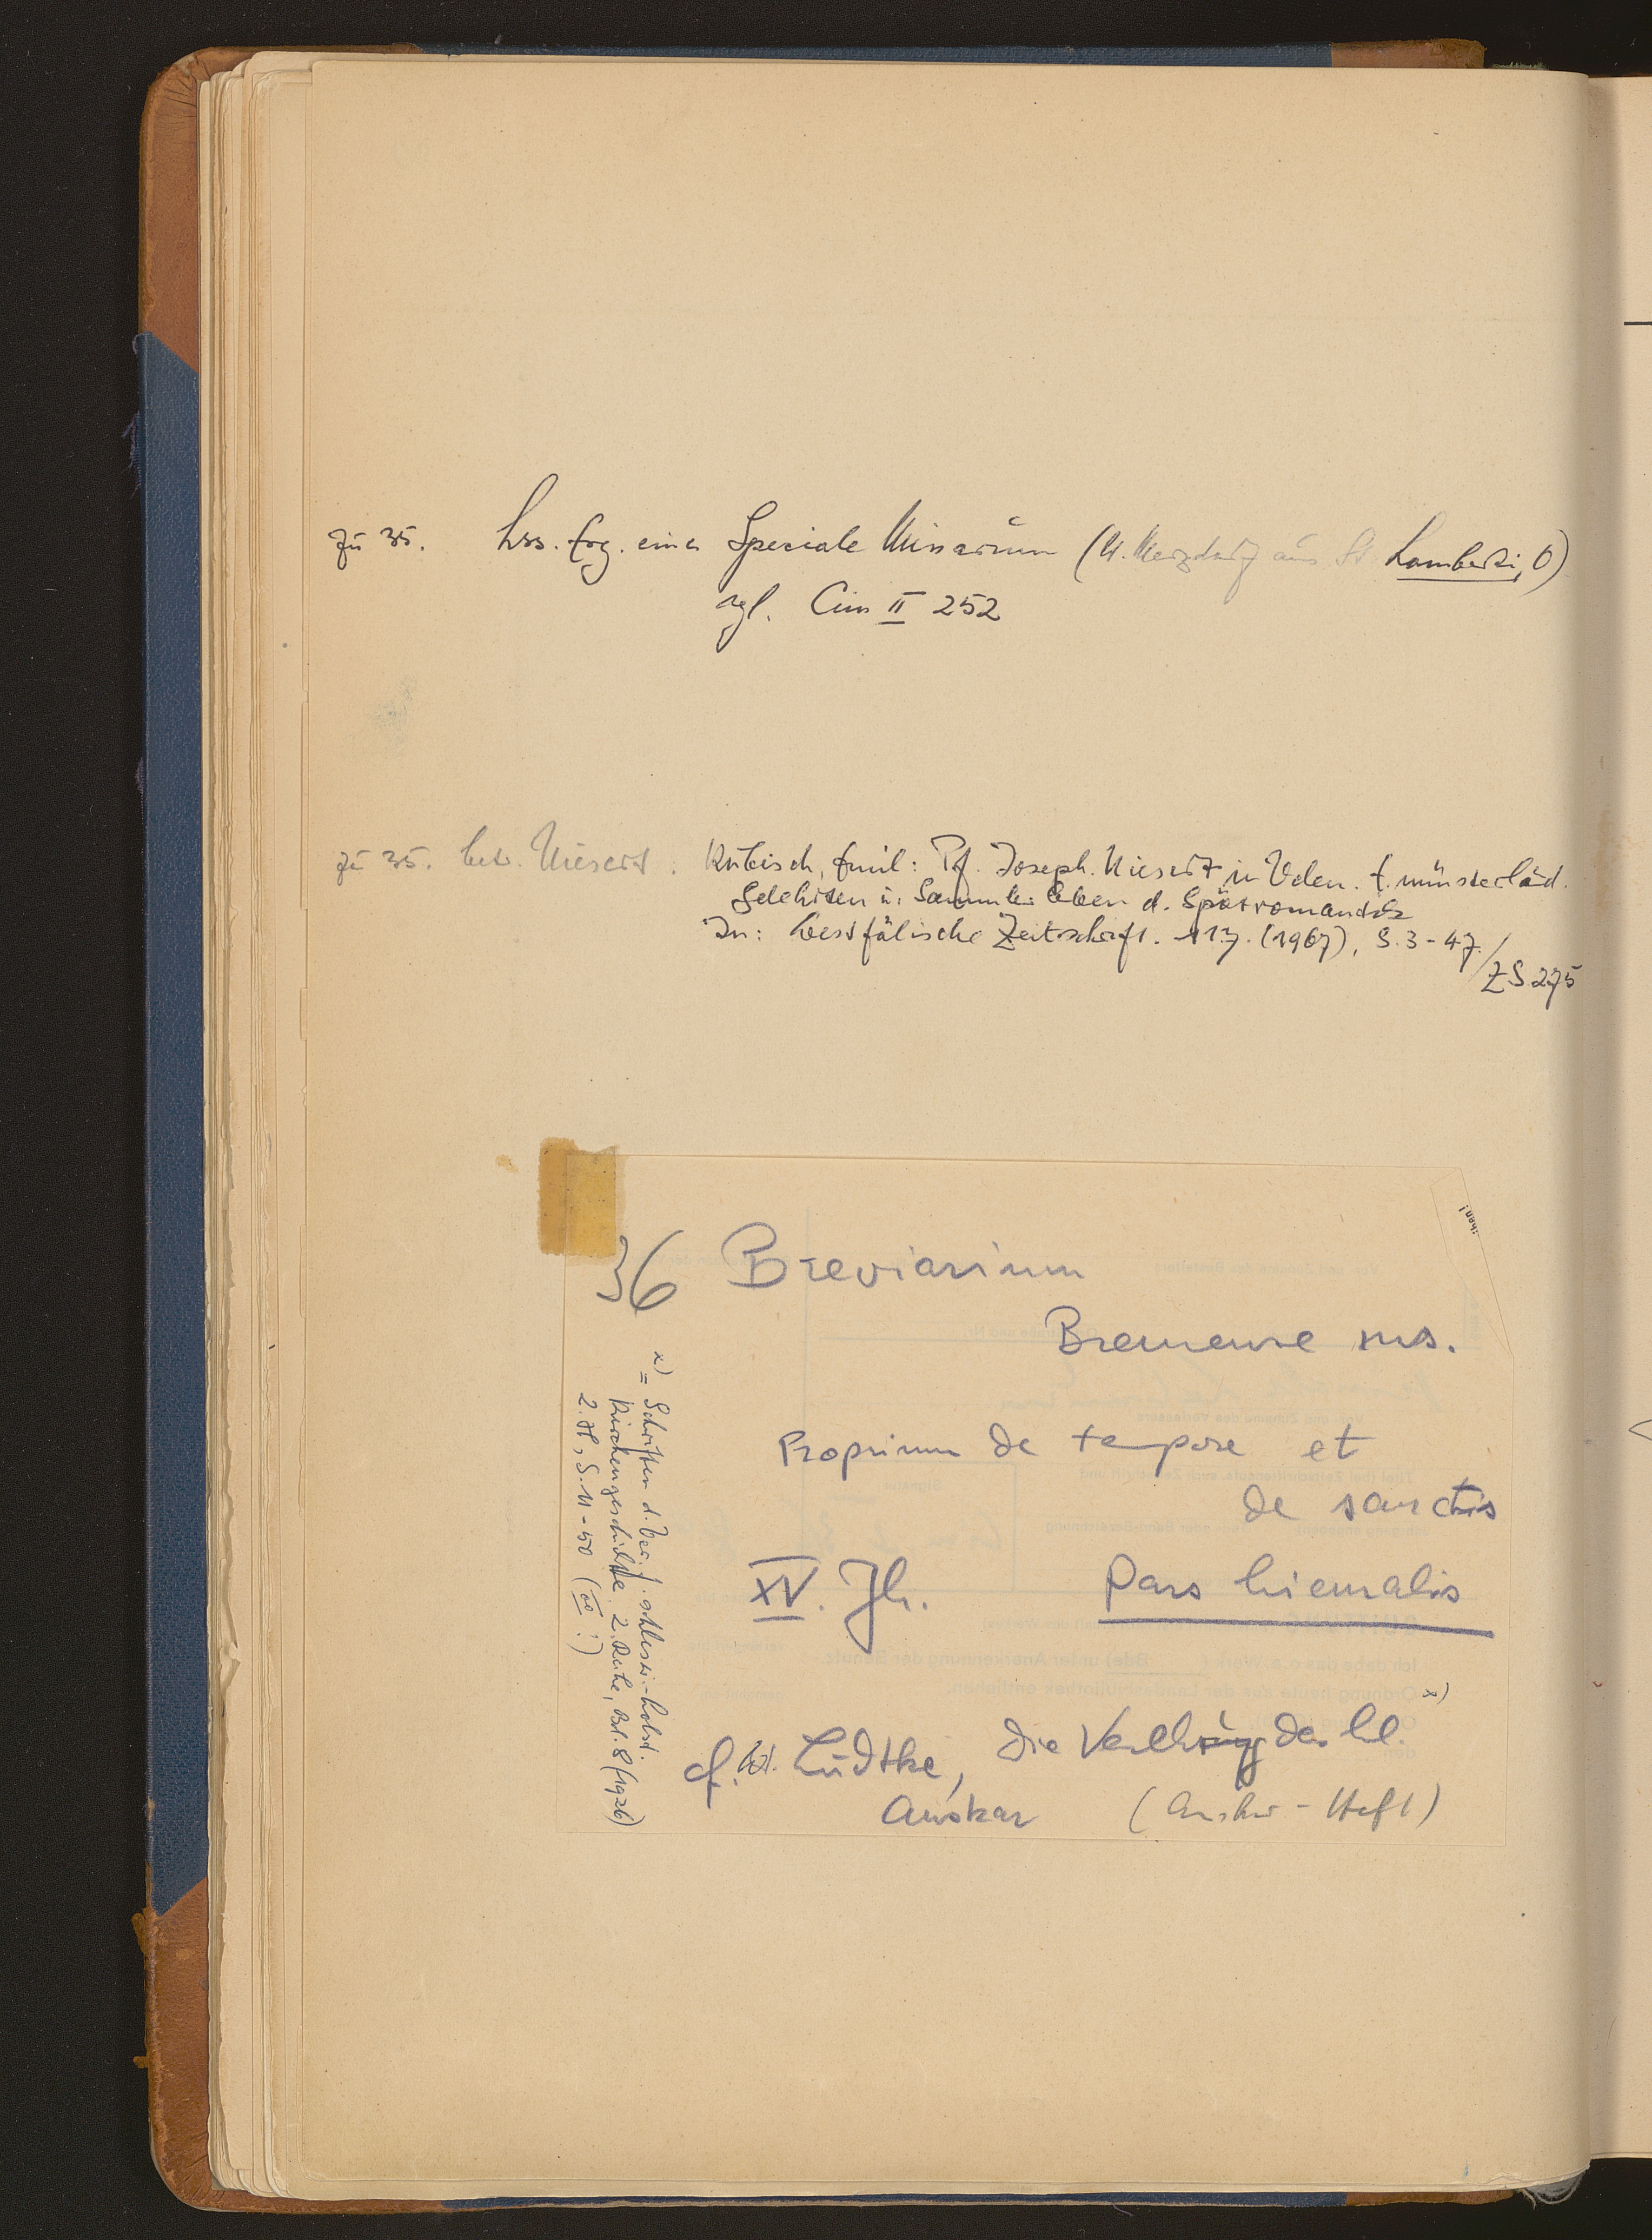 zu 35. hss. Erg. eines Speciale Missarum (lt. Merzdorf aus St Lamberti, O)
vgl. Cim II 252
zu 35. betr. Niesert: Kubisch, Emil: Pf. Joseph Niesert in Velen. E. münsterländ.
Gelehrten u. Sammlerleben d. Spätromantik
In: Westfälische Zeitschrift. 117. (1967), S. 3-47. /
ZS 275
36 Breviarium
Bremense ms.
Proprium de tempore et
de sanctis
XV. Jh. Pars hiemalis
cf. W. Lüdtke, Die Verehrung des hl. x)
Anskar (Anskar-Heft)
x) = Schriften d. Ver. f. schlesw.-holst.
Kirchengeschichte. 2. Reihe, Bd. 8 (1926)
2. H., S. 11-50 (!)
ihen!